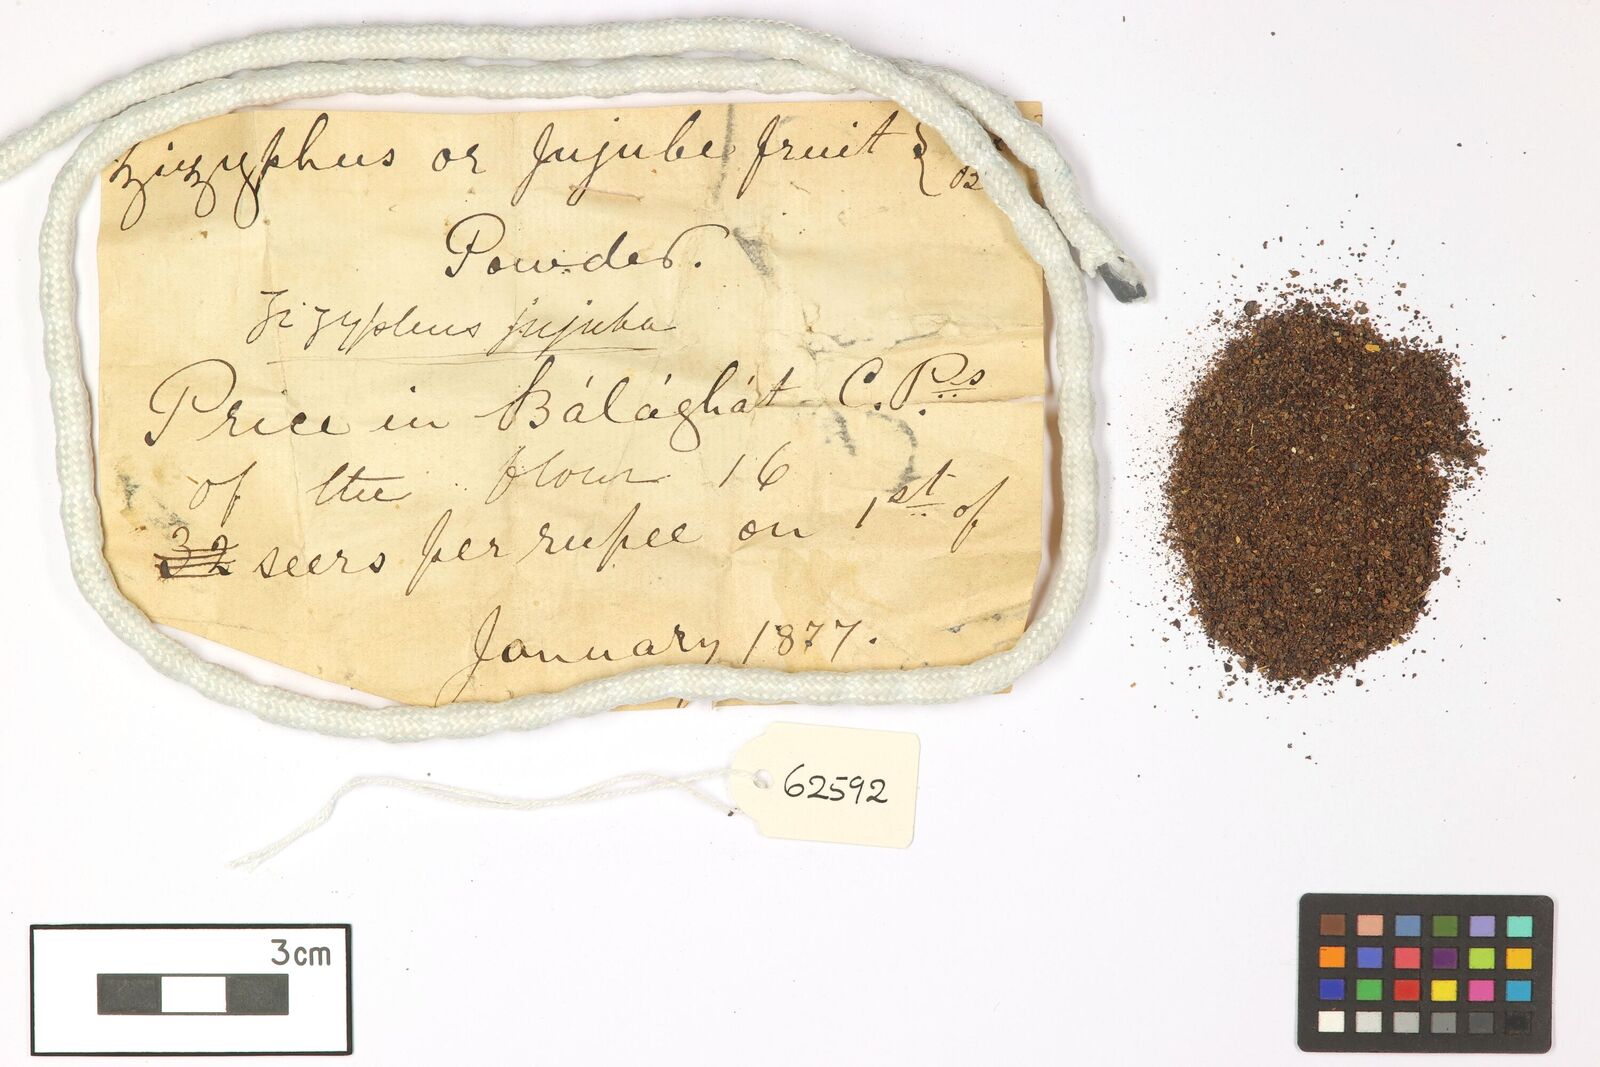 Zizyphus or Jujube fruit {
oz
Powder.
Zizyphus jujuba
Price in Bálághát C. P.s
of the flour 16
32 seers per rupee on 1st of
January 1877.
62592
3cm